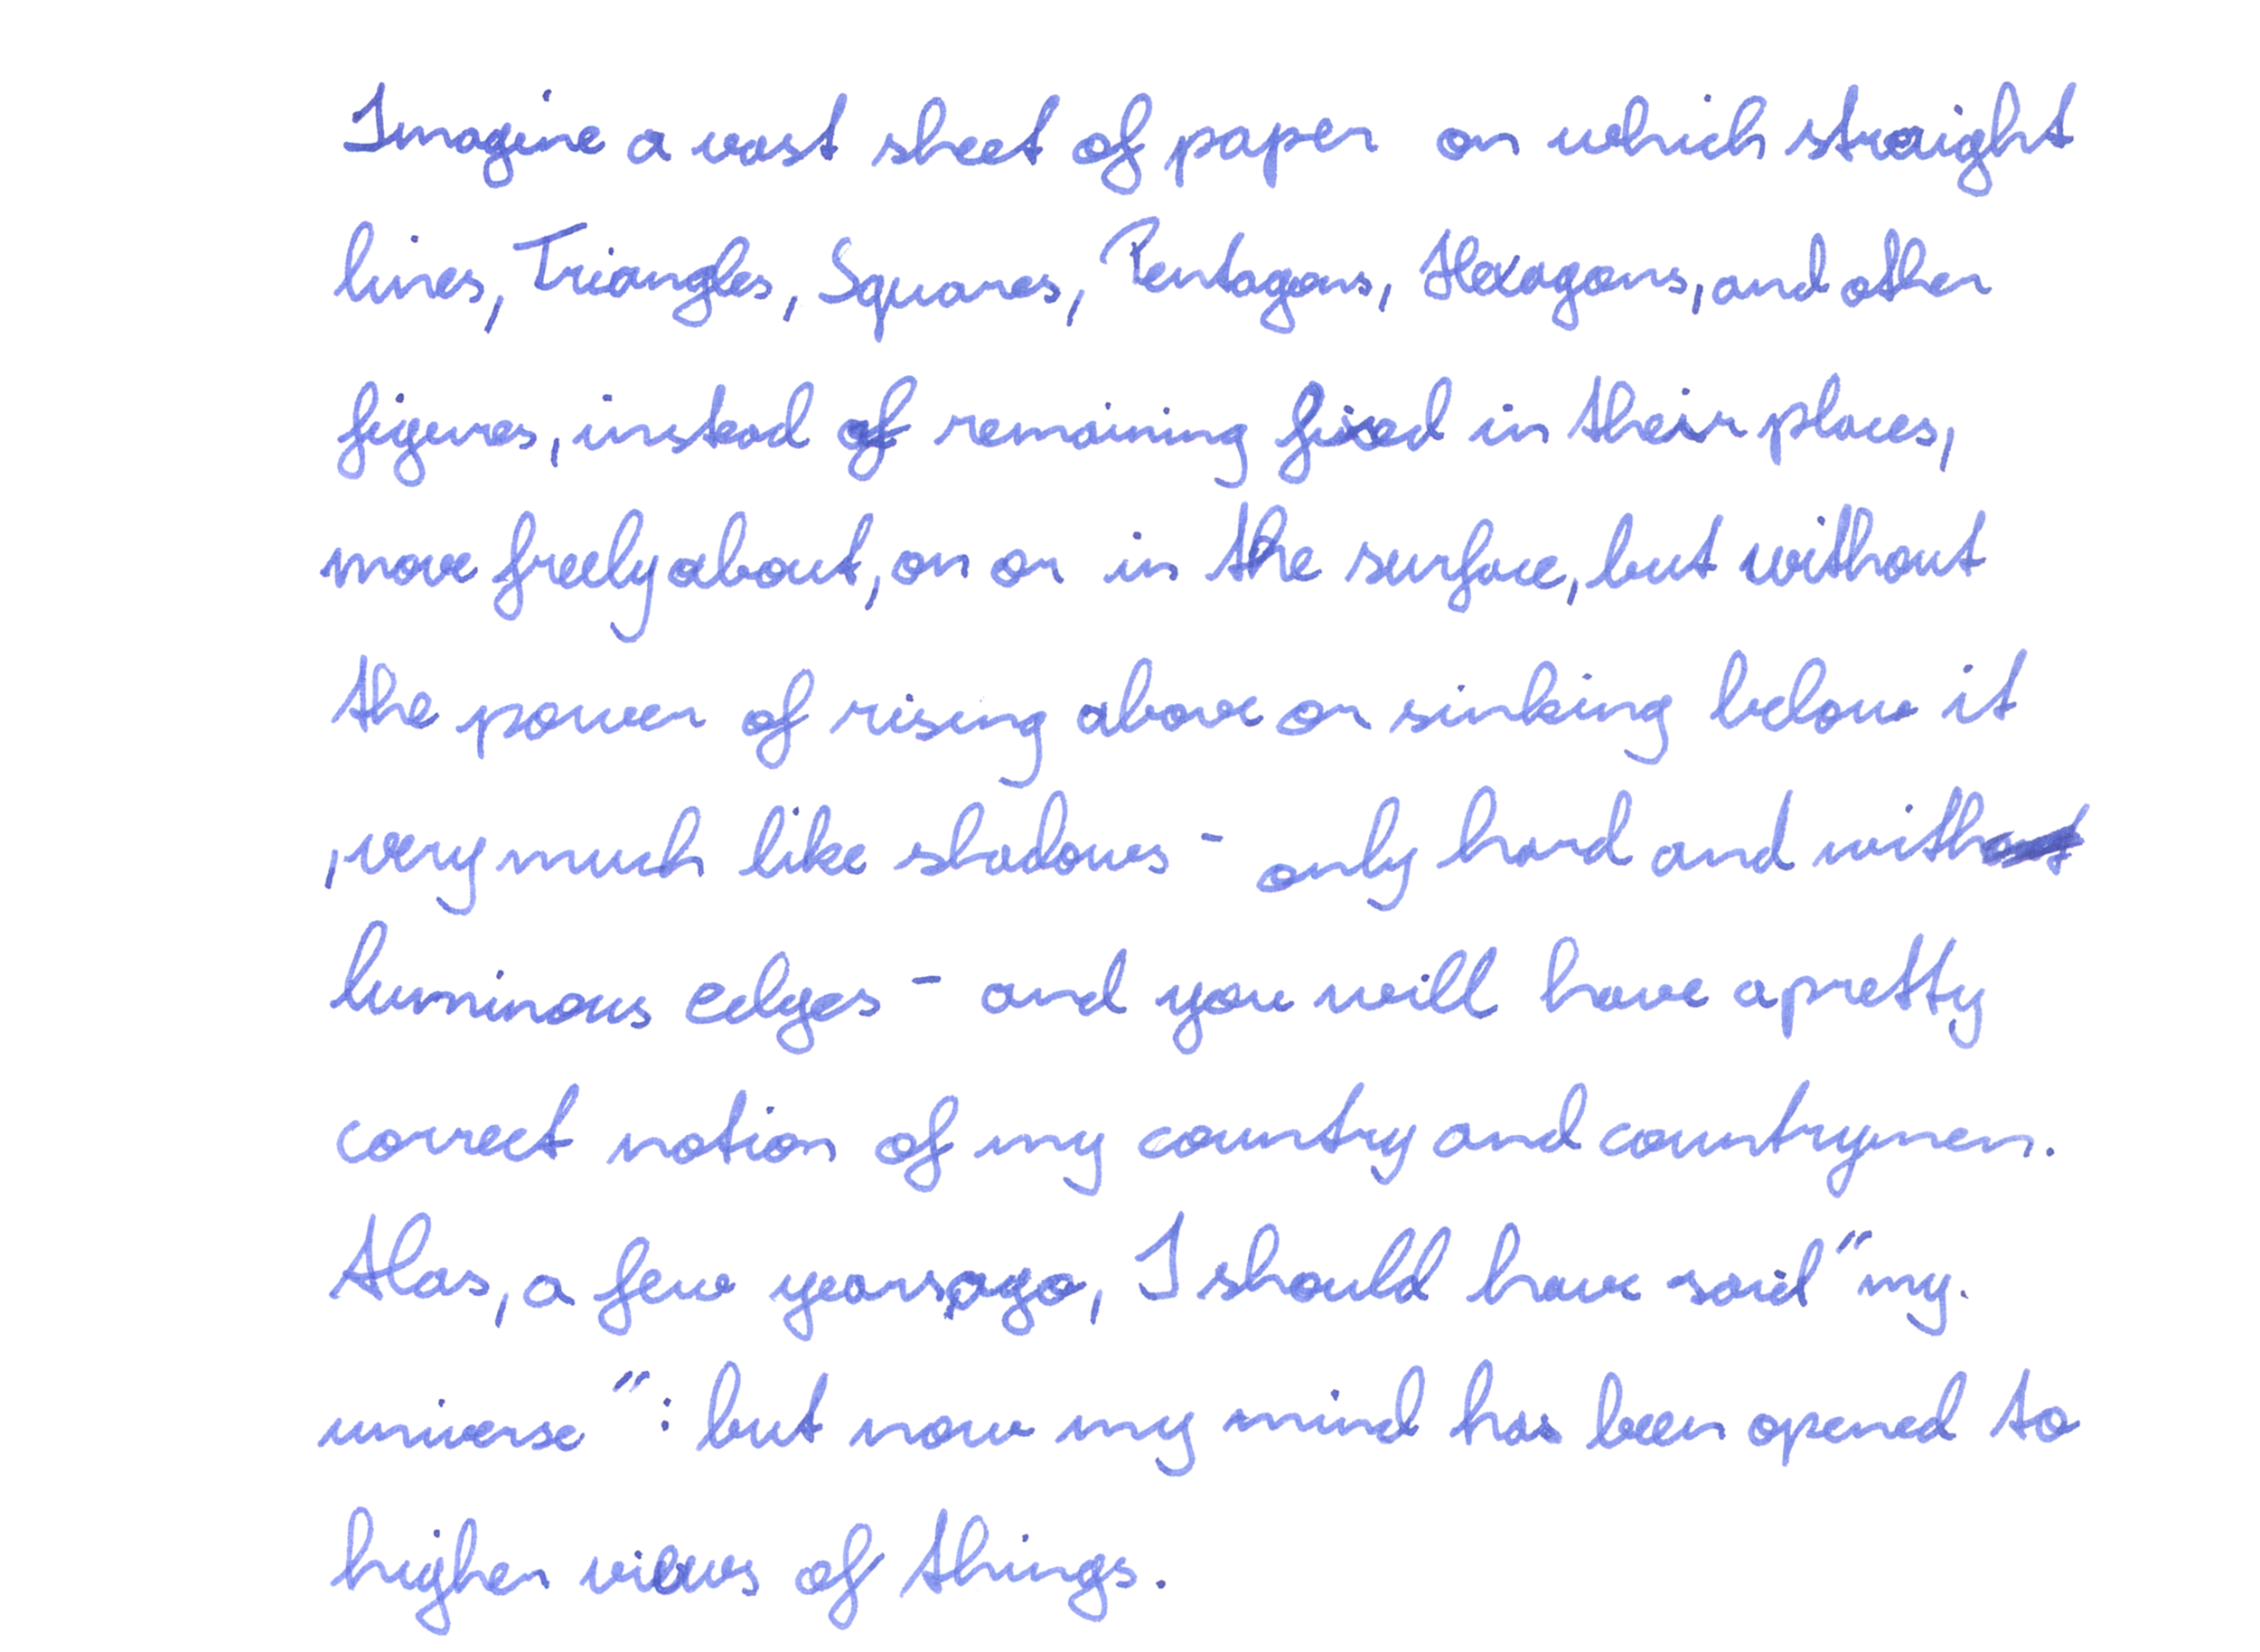 Imagine a vast sheet of paper on which straight
lines, Triangles, Squares, Pentagons, Hexagons, and other
figures, instead of remaining fixed in their places,
move freely about, on or in the surface, but without
the power of rising above or sinking below it
, very much like shadows - only hard and with
luminous edges - and you will have a pretty
correct notion of my country and countrymen.
Alas, a few years ago, I should have said "my.
universe": but now my mind has been opened to
higher views of things.